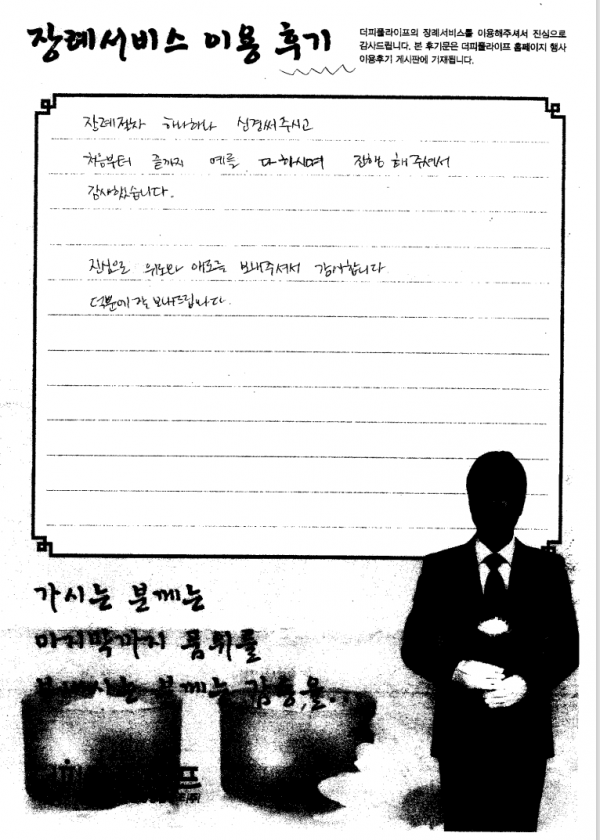 장례서비스 이용 후기
더피플라이프의 장례서비스를 이용해주셔서 진심으로
감사드립니다. 본 후기문은 더피플라이프 홈페이지 행사
이용후기 게시판에 기재됩니다.
장례절차 하나하나 신경써주시고
처음부터 끝까지 예를 다하시며 진행해주셔서
감사했습니다.
진심으로 위로와 애도를 보내주셔서 감사합니다
덕분에 잘 보내드립니다.
가시는 분께는
마지막까지 품위를
보내시는 분께는 감동을..